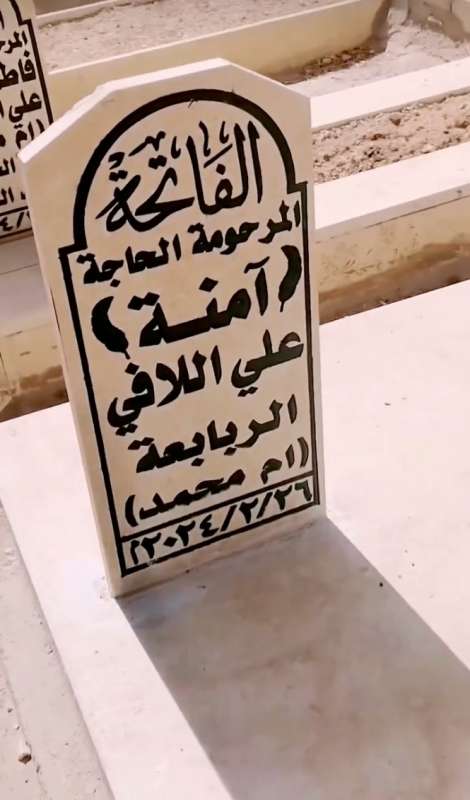 الفاتحة
المرحومة الحاجة
(آمنة)
علي اللافي
الربابعة
(ام محمد)
٢٠٢٤/٢/٢٦م
المر
فاط
علي ا